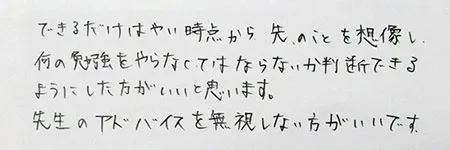 できるだけはやい時点から先のことを想像し、
何の勉強をやらなくてはならないか判断できる
ようにした方がいいと思います。
先生のアドバイスを無視しない方がいいです